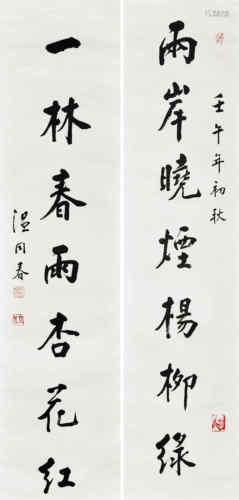 壬午年初秋
兩岸曉煙楊柳綠
一林春雨杏花红
温同春